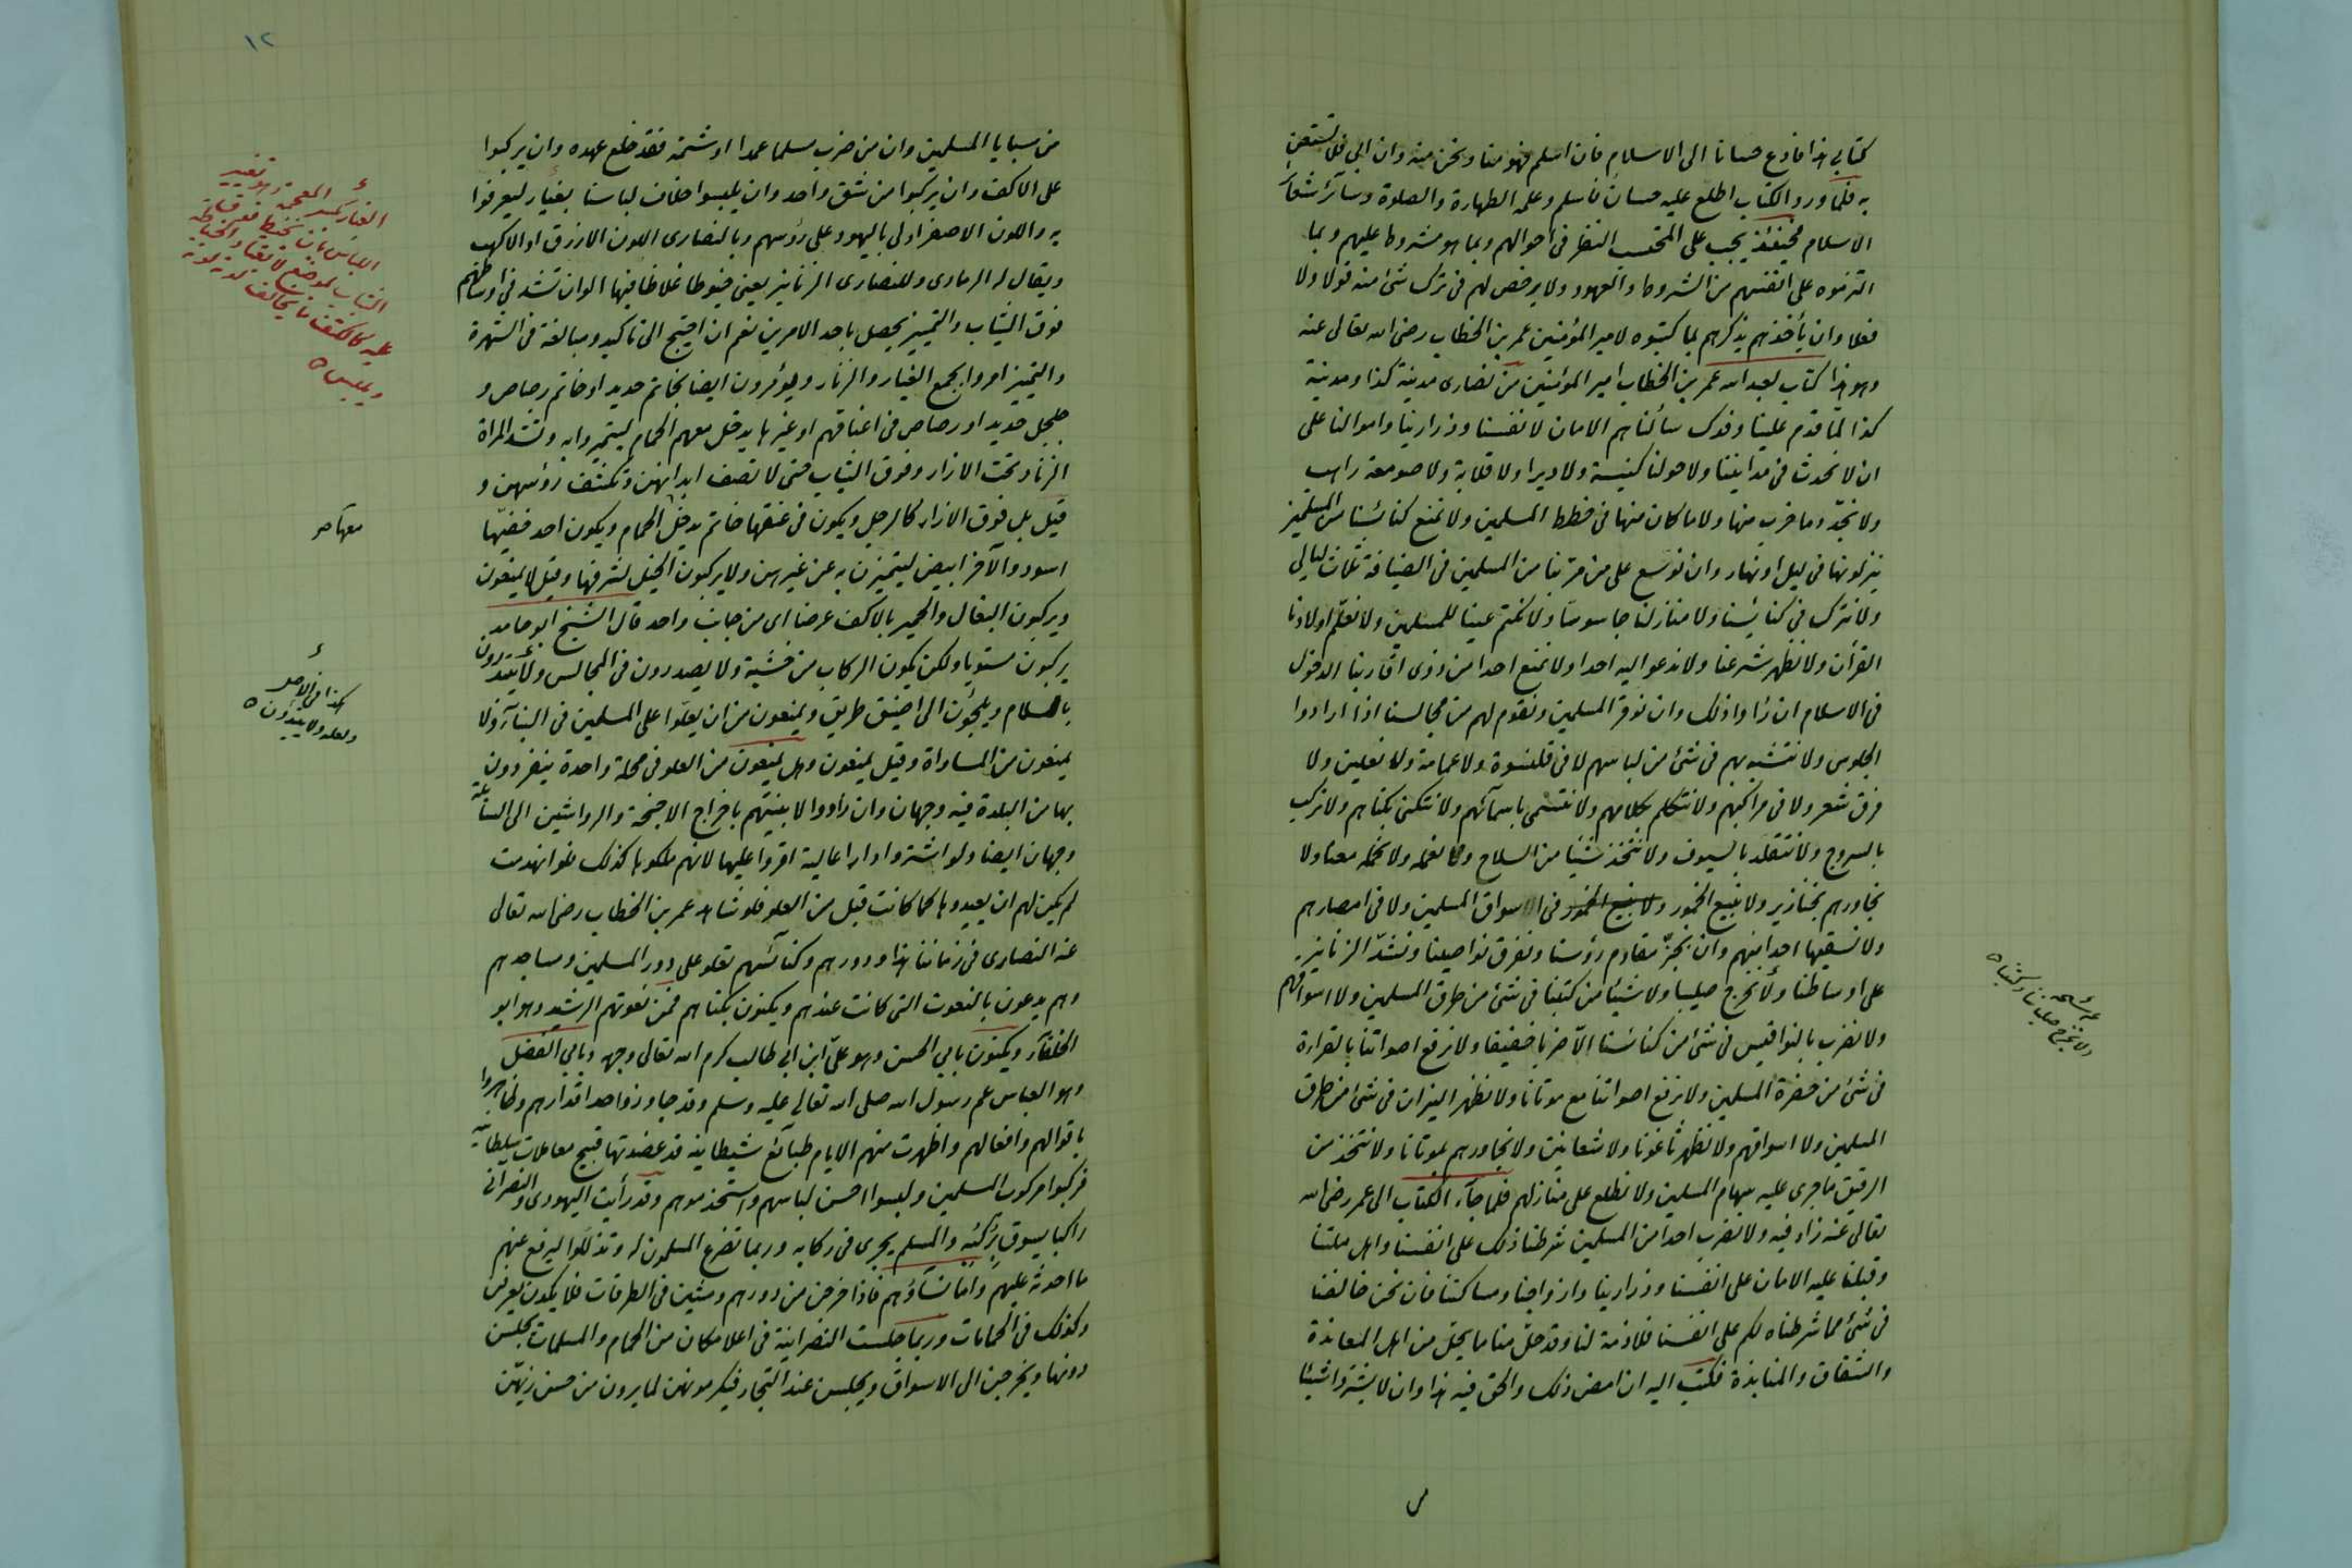 كتابى هذا فادع حسانا الى الاسلام فان اسلم فهو منا ونحن منه وان ابى فلا تستعن
به فلما ورد الكتاب اطلع عليه حسان فاسلم وعلمه الطهارة والصلوة وسائر شعائر
الاسلام فحينئذ يجب على المحتسب النظر فى احوالهم وبما هو مشروط عليهم وبما
التزموه على انفسهم من الشروط والعهود ولا يرخص لهم فى ترك شئ منه قولا ولا
فعلا وان يأخذهم بذكرهم بما كتبوه لامير المؤمنين عمر بن الخطاب رضى الله تعالى عنه
وهو هذا كتاب لعبد الله عمر بن الخطاب امير المؤمنين من نصارى مدينة كذا ومدينة
كذا لما قدم علينا وفدك سألناهم الامان لانفسنا وذرارينا واموالنا على
ان لا نحدث فى مدايننا ولا حولنا كنيسة ولا ديرا ولا قلاية ولا صومعة راهب
ولا نجدد ما خرب منها ولا ما كان منها فى خطط المسلمين ولا نمنع كنائسنا من المسلمين
ينزلونها فى ليل او نهار وان نوسع على من مر بنا من المسلمين فى الضيافة ثلاث ليالى
ولا نترك فى كنائسنا ولا منازلنا جاسوسا ولا نكتم عينا للمسلمين ولا نعلم اولادنا
القرأن ولا نظهر شرعنا ولا ندعو اليه احدا ولا نمنع احدا من ذوى اقاربنا الدخول
فى الاسلام ان ارادوا ذلك وان نوقر المسلمين ونقوم لهم من مجالسنا اذا ارادوا
الجلوس ولا نتشبه بهم فى شئ من لباسهم لا فى قلنسوة ولا عمامة ولا نعلين ولا
فرق شعر ولا فى مراكبهم ولا نتكلم بكلامهم ولا نتسمى باسمائهم ولا نتكنى بكناهم ولا نركب
بالسروج ولا نتقلد بالسيوف ولا نتخذ شيئا من السلاح ولا نعمله ولا نحمله معنا ولا
نجاورهم بخنازير ولا نبيع الخمور ولا نبيع الخمور فى الاسواق المسلمين ولا فى امصارهم
ولا نسقيها احدا منهم وان نجز مقادم رؤسنا ونفرق نواصينا ونشد الزنانير
على اوساطنا ولا نخرج صليبا ولا شيئا من كتبنا فى شئ من طرق المسلمين ولا اسواقهم
ولا نضرب بالنواقيس فى شئ من كنائسنا الا ضربا خفيفا ولا نرفع اصواتنا بالقراءة
فى شئ من حضرة المسلمين ولا نرفع اصواتنا مع موتانا ولا نظهر النيران فى شئ من طرق
المسلمين ولا اسواقهم ولا نظهر باغوثا ولا شعانين ولا نجاورهم بموتانا ولا نتخذ من
الرقيق ما جرى عليه سهام المسلمين ولا نطلع على منازلهم فلما جاء الكتاب الى عمر رضى الله
تعالى عنه زاد فيه ولا نضرب احدا من المسلمين شرطنا ذلك على انفسنا واهل ملتنا
وقبلنا عليه الامان على انفسنا وذرارينا وازواجنا ومساكننا فان نحن خالفنا
فى شئ مما شرطناه لكم على انفسنا فلا ذمة لنا وقد حل منا ما يحل من اهل المعاندة
والشقاق والمنابذة فكتب اليه ان امض ذلك والحق فيه هذا وان لا يشتروا شيئا
ولا نخرج صليبنا وكتبنا
١٢
من سبايا المسلمين وان من ضرب مسلما عمدا او شتمه فقد خلع عهده وان يركبوا
على الاكف وان يركبوا من شق واحد وان يلبسوا خلاف لباسنا بغيار ليعرفوا
به واللون الاصفر اولى باليهود على رؤسهم وبالنصارى اللون الازرق او الاكهب
ويقال له الرمادى وللنصارى الزنانير يعنى خيوطا غلاظا فيها الوان تشد فى اوساطهم
فوق الثياب والتمييز يحصل باحد الامرين نعم ان احتيج الى تاكيد ومبالغة فى الشهرة
والتمييز امروا بجمع الغيار والزنار ويؤمرون ايضا بخاتم حديد او خاتم رصاص و
جلجل حديد او رصاص فى اعناقهم او غيرها يدخل معهم الحمام ليتميزوا به وتشد المراة
الزنار تحت الازار وفوق الثياب حتى لا تصف ابدانهن وتكشف رؤسهن و
قيل بل فوق الازار كالرجل ويكون فى عنقها خاتم يدخل الحمام ويكون احد خفيها
اسود والآخر ابيض ليتميزن به عن غيرهن ولا يركبون الخيل لشرفها وقيل لا يمنعون
ويركبون البغال والحمير بالاكف عرضا اى من جانب واحد قال الشيخ ابو حامد
يركبون مستويا ولكن يكون الركاب من خشبة ولا يصدرون فى المجالس ولا يبتدرون
بالسلام ويلجئون الى اضيق طريق ويمنعون من ان يعلوا على المسلمين فى البناء ولا
يمنعون من المساواة وقيل يمنعون وهل يمنعون من العلو فى محلة واحدة ينفردون
بها من البلدة فيه وجهان وان رادوا لابنيتهم باخراج الاجنحة والرواشين الى السابلة
وجهان ايضا ولو اشتروا دارا عالية اقروا عليها لانهم ملكوها كذلك فلو انهدمت
لم يكن لهم ان يعيدوها كما كانت قبل من العلو فلو شاهد عمر بن الخطاب رضى الله تعالى
عنه النصارى فى زماننا هذا ودورهم وكنائسهم تعلو على دور المسلمين ومساجدهم
وهم يدعون بالنعوت التى كانت عندهم ويكنون بكناهم فمن نعوتهم الرشيد وهو ابو
الخلفاء ويكنون بابى الحسن وهو على ابن ابى طالب كرم الله تعالى وجهه وبابى الفضل
وهو العباس عم رسول الله صلى الله تعالى عليه وسلم وقد جاوزوا حد اقدارهم وتظاهروا
باقوالهم وافعالهم واظهرت منهم الايام طبائع شيطانية قد عضدتها قبيح معاملات سلطانية
فركبوا مركوب المسلمين ولبسوا احسن لباسهم واستخدموهم وقد رأيت اليهودى والنصرانى
راكبا يسوق مركبه والمسلم يجرى فى ركابه وربما تضرع المسلمون له وتذللوا ليرفع عنهم
ما احدثه عليهم واما نساؤهم فاذا خرجن من دورهم ومشين فى الطرقات فلا يكدن يعرفن
وكذلك فى الحمامات وربما جلست النصرانية فى اعلا مكان من الحمام والمسلمات يجلسن
دونها ويخرجن الى الاسواق ويجلسن عند التجار فيكرمونهن لما يرون من حسن زيهن
معها صح
كذا فى الاصل
ولعله ولا يبتدؤن